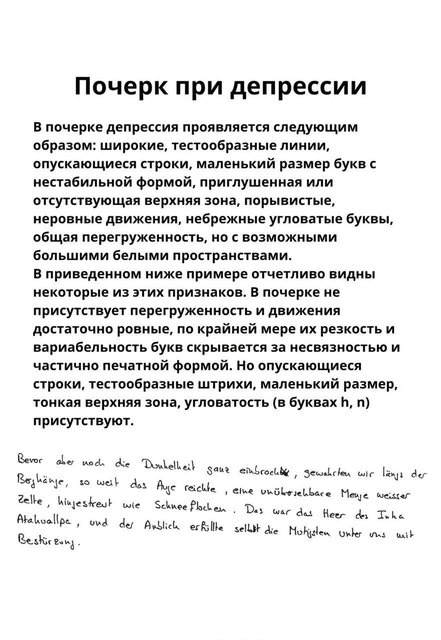 Почерк при депрессии
В почерке депрессия проявляется следующим
образом: широкие, тестообразные линии,
опускающиеся строки, маленький размер букв с
нестабильной формой, приглушенная или
отсутствующая верхняя зона, порывистые,
неровные движения, небрежные угловатые буквы,
общая перегруженность, но с возможными
большими белыми пространствами.
В приведенном ниже примере отчетливо видны
некоторые из этих признаков. В почерке не
присутствует перегруженность и движения
достаточно ровные, по крайней мере их резкость и
вариабельность букв скрывается за несвязностью и
частично печатной формой. Но опускающиеся
строки, тестообразные штрихи, маленький размер,
тонкая верхняя зона, угловатость (в буквах h, n)
присутствуют.
Bevor aber noch die Dunkelheit ganz einbrach, gewahrten wir längs der
Berghänge, so weit das Auge reichte, eine unübersehbare Menge weisser
Zelte, hingestreut wie Schneeflocken. Das war das Heer des Inka
Atahuallpa, und der Anblick erfüllte selbst die Mutigsten unter uns mit
Bestürzung.